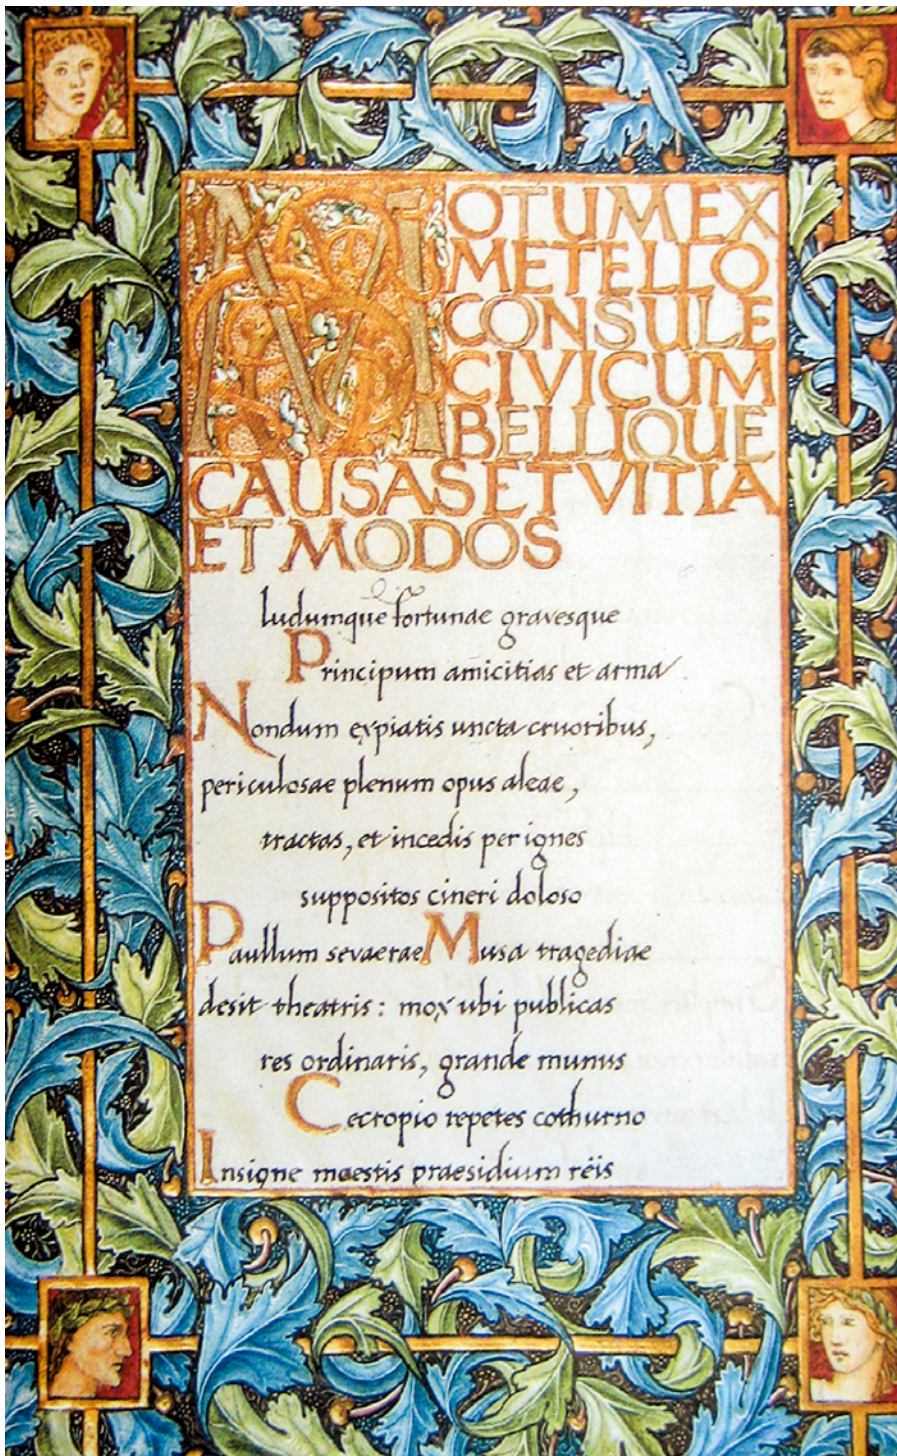 MOTUM EX
METELLO
CONSULE
CIVICUM
BELLIQUE
CAUSAS ET VITIA
ET MODOS
ludumque fortunae gravesque
Principum amicitias et arma
Nondum expiatis uncta cruoribus,
periculosae plenum opus aleae,
tractas, et incedis per ignes
suppositos cineri doloso
Paullum sevaerae Musa tragediae
desit theatris: mox ubi publicas
res ordinaris, grande munus
Cecropio repetes cothurno
Insigne maestis praesidium rëis